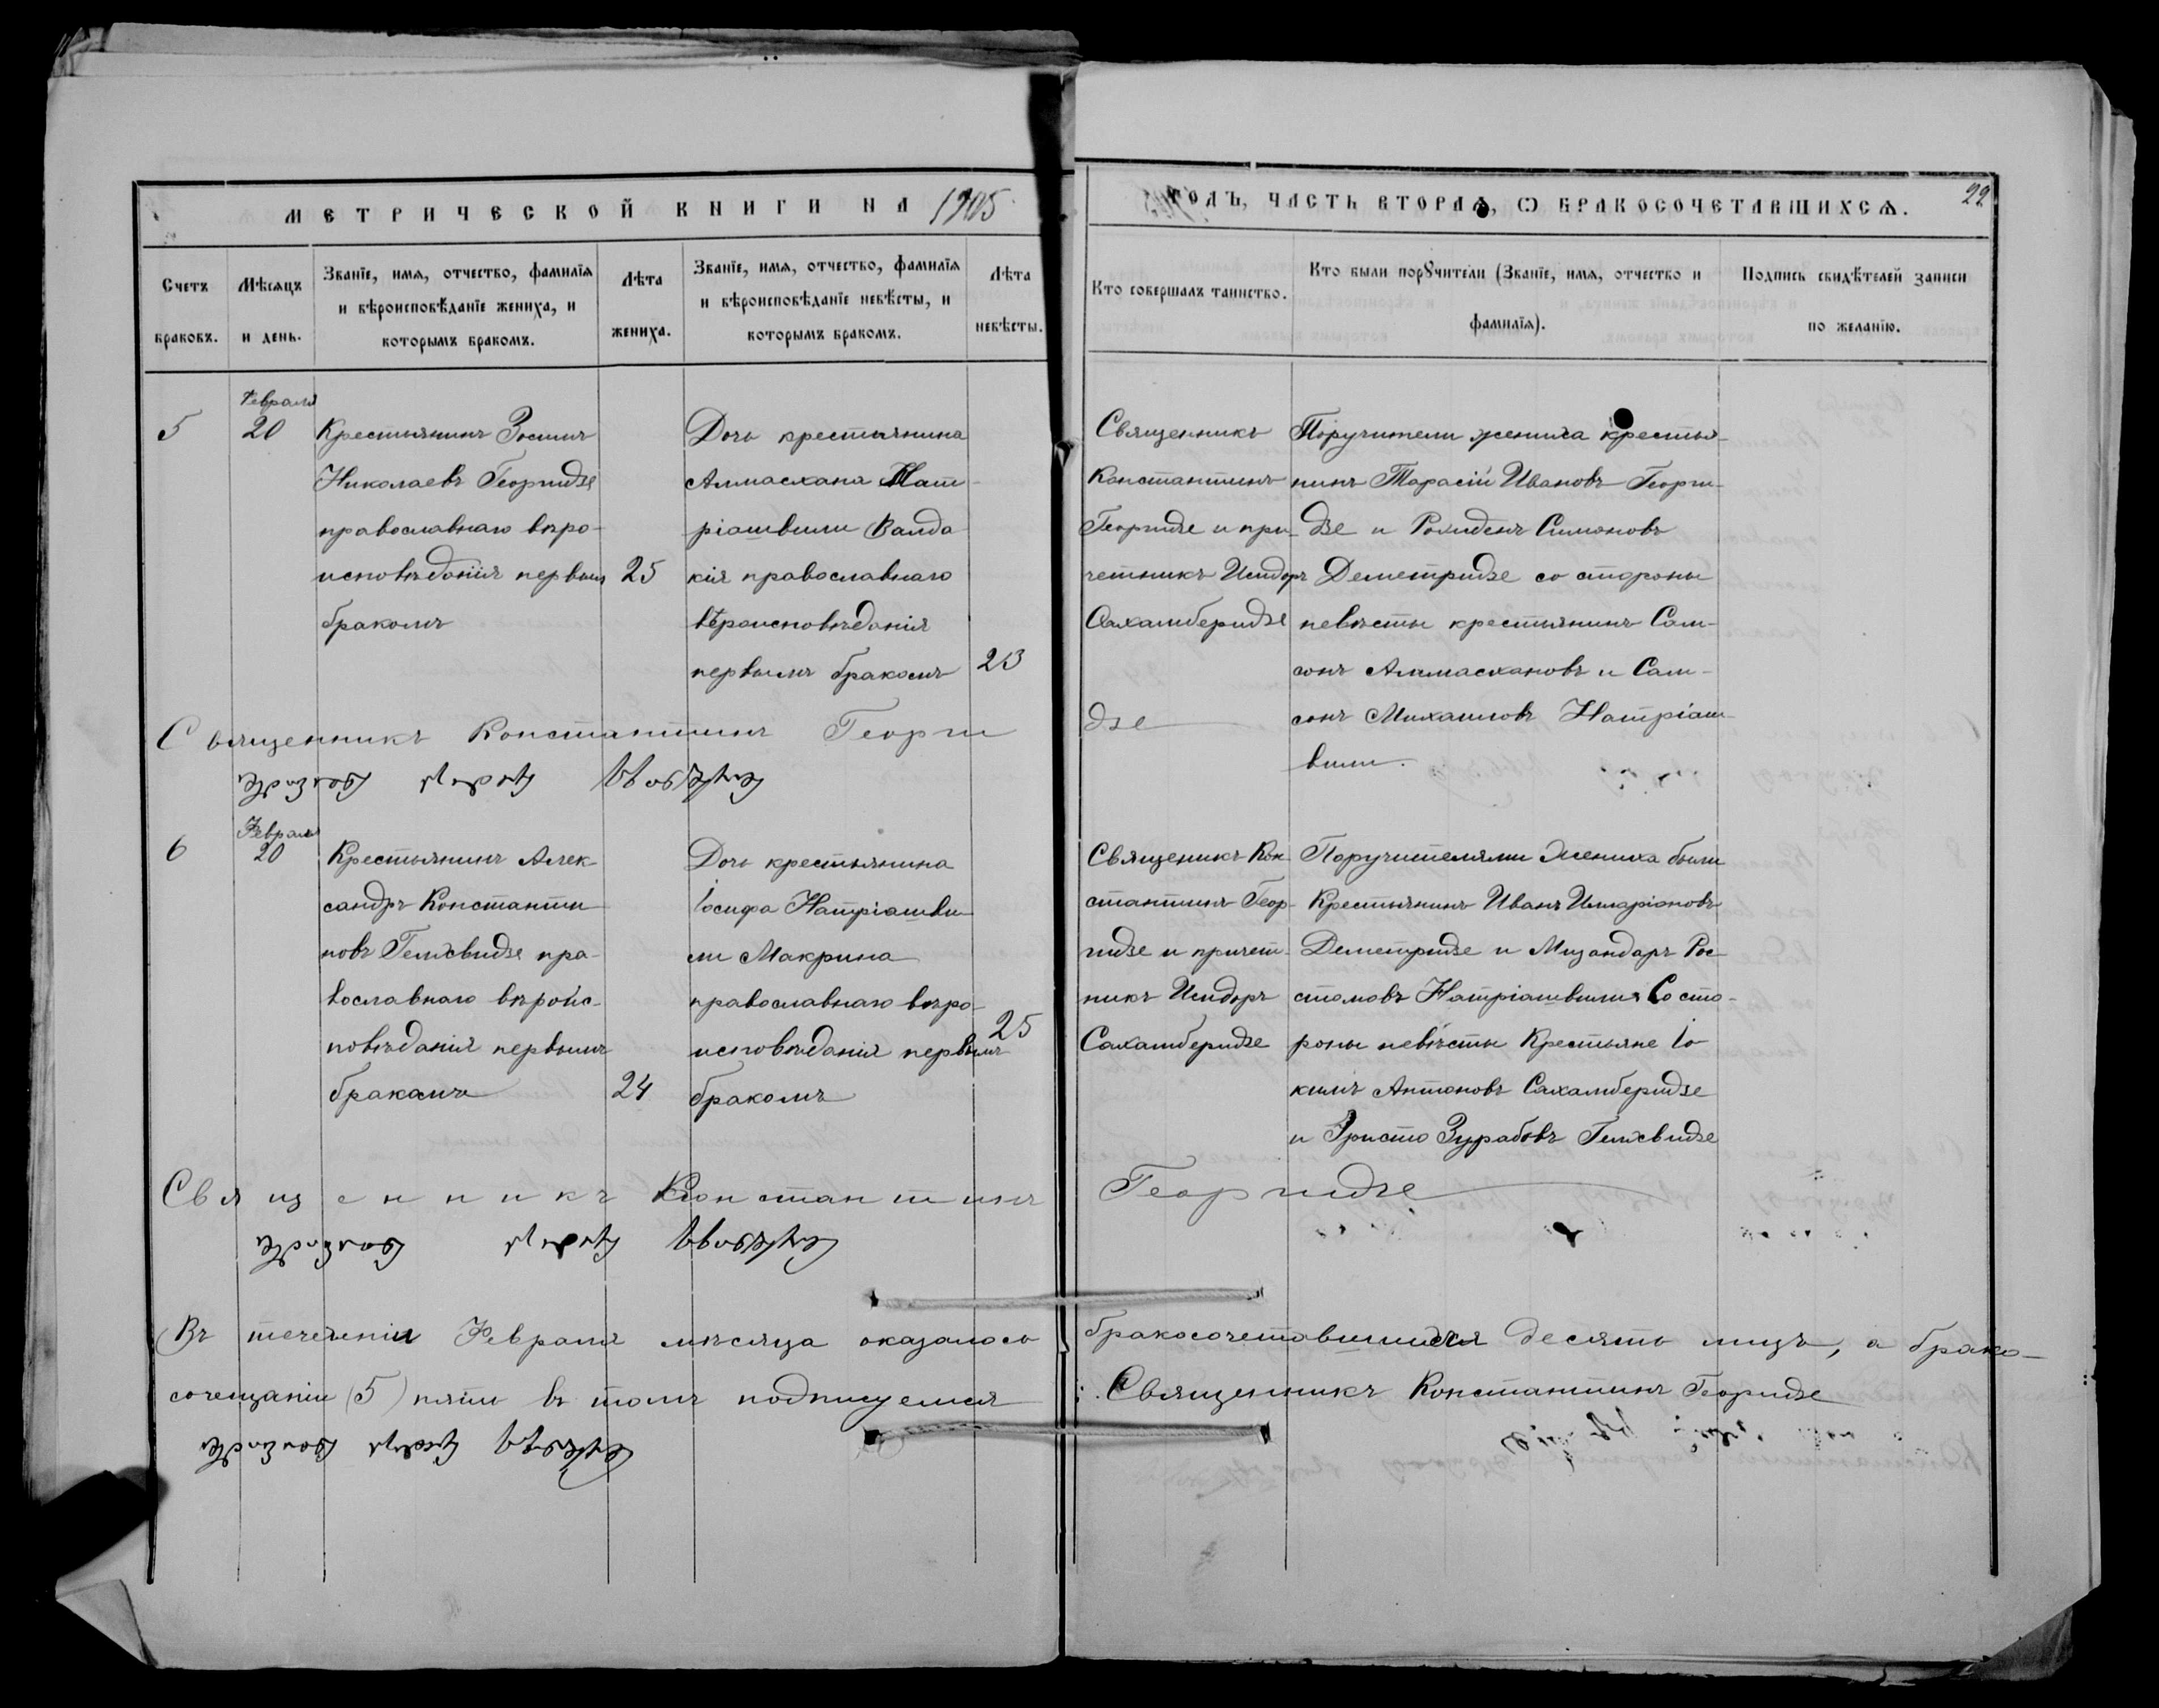 МЕТРИЧЕСКОЙ КНИГИ НА 1905
ГОДЪ, ЧАСТЬ ВТОРАѦ, Ѡ БРАКОСОЧЕТАВШИХСѦ.
22
Счетъ браковъ.
Мѣсѧцъ и день.
Званїе, имѧ, отчество, фамилїѧ
и вѣроисповѣданїе жениха, и
которымъ бракомъ.
Лѣта жениха.
Званїе, имѧ, отчество, фамилїѧ
и вѣроисповѣданїе невѣсты, и
которымъ бракомъ.
Лѣта невѣсты.
Кто совершалъ таинство.
Кто были порꙋчители (Званїе, имѧ, отчество и
фамилїѧ).
Подпись свидѣтелей записи
по желанїю.
5
Февраля
20
Крестьянинъ Зосимъ
Николаевъ Георгидзе
православнаго вѣро-
исповѣданія первымъ
бракомъ
25
Дочь крестьянина
Алмасхана Нат-
ріашвили Валда
кія православнаго
вѣроисповѣданія
первымъ бракомъ
23
Священникъ
Константинъ
Георгидзе и при-
четникъ Исидоръ
Сахамберидзе
Поручители жениха крестья-
нинъ Тарасій Ивановъ Георги-
дзе и Роиденъ Симоновъ
Деметридзе со стороны
невѣсты крестьянинъ Сам-
сонъ Алмасхановъ и Сам-
сонъ Михаиловъ Натріаш-
вили.
Священникъ Константинъ Георги
дзе
6
Февраля
20
Крестьянинъ Алек-
сандръ Константи-
новъ Гелхвидзе пра-
вославнаго вѣроис-
повѣданія первымъ
бракамъ
24
Дочь крестьянина
Іосифа Натріашви
ли Макрина
православнаго вѣро-
исповѣданія первымъ
бракомъ
25
Священикъ Кон-
стантинъ Геор-
гидзе и причет-
никъ Исидоръ
Сахамберидзе
Поручителями Жениха были
Крестьянинъ Иванъ Иларіоновъ
Деметридзе и Мизандаръ Рос-
томовъ Натріашвили Со сто-
роны невѣсты Крестьяне Іо-
кимъ Антоновъ Сахамберидзе
и Эристо Зурабовъ Гелхвидзе
Священникъ Константинъ
Георгидзе
Въ теченіи Февраля мѣсяца оказалось бракосочетавшихся десять лицъ, а брако-
сочещаніи (5) пять въ томъ подписуемся
Священникъ Константинъ Георгидзе